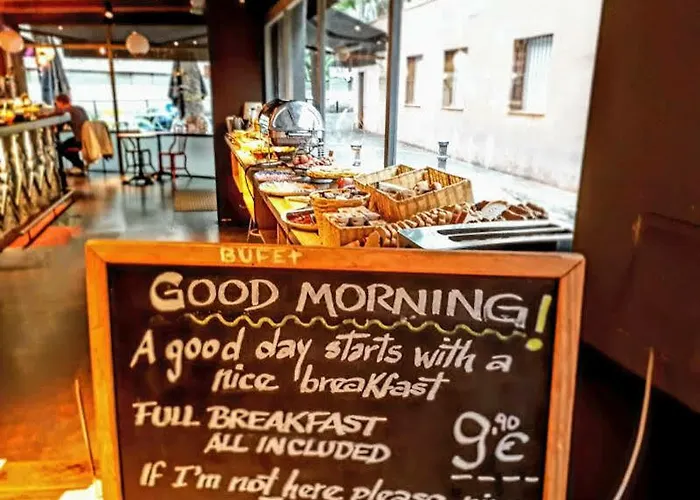 BUFET
GOOD MORNING!
A good day starts with a
nice breakfast
FULL BREAKFAST
ALL INCLUDED
9'90 €
If I'm not here please